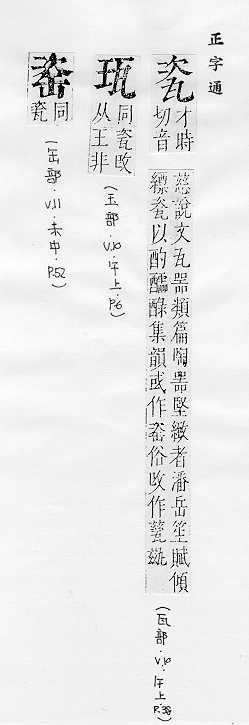 正字通
瓷
才時
切音
慈說文瓦器類篇陶器堅緻者潘岳笙賦傾
縹瓷以酌酃醁集韻或作𦈱俗改作甆
(瓦部.V.10.午上.P.38)
同瓷改
从王非
(玉部.V.10.午上.P.6)
𦈱
同
瓷
(缶部.V.11.未中.P.52)